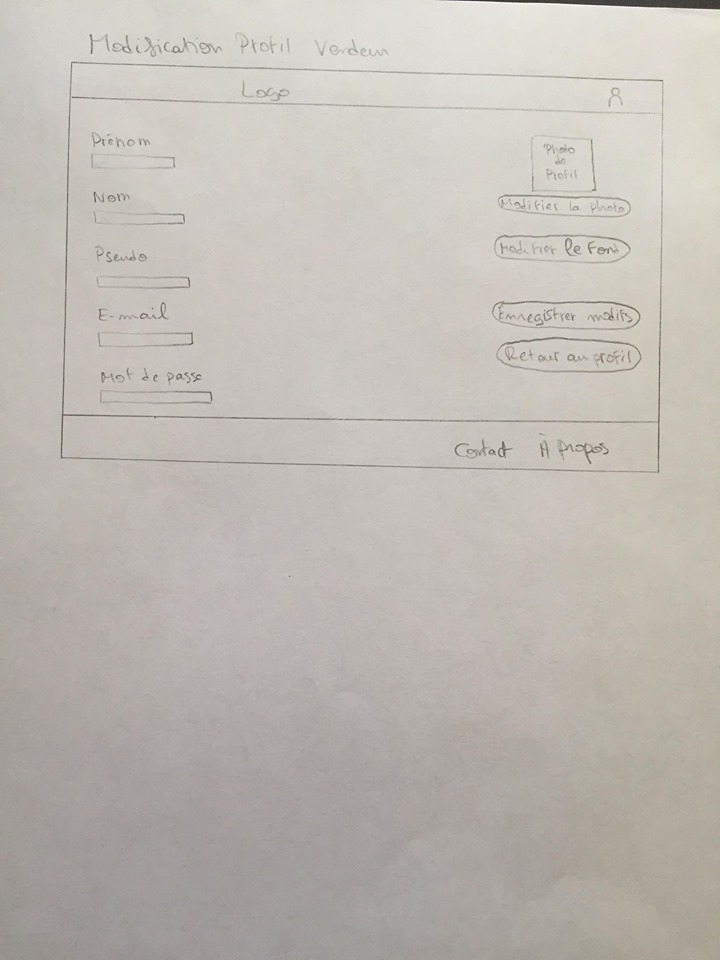 Modification Profil Vendeur
Logo
Prénom
Nom
Pseudo
E-mail
Mot de passe
Photo
de
Profil
Modifier la photo
Modifier le Fond
Enregistrer modifs
Retour au profil
Contact À propos